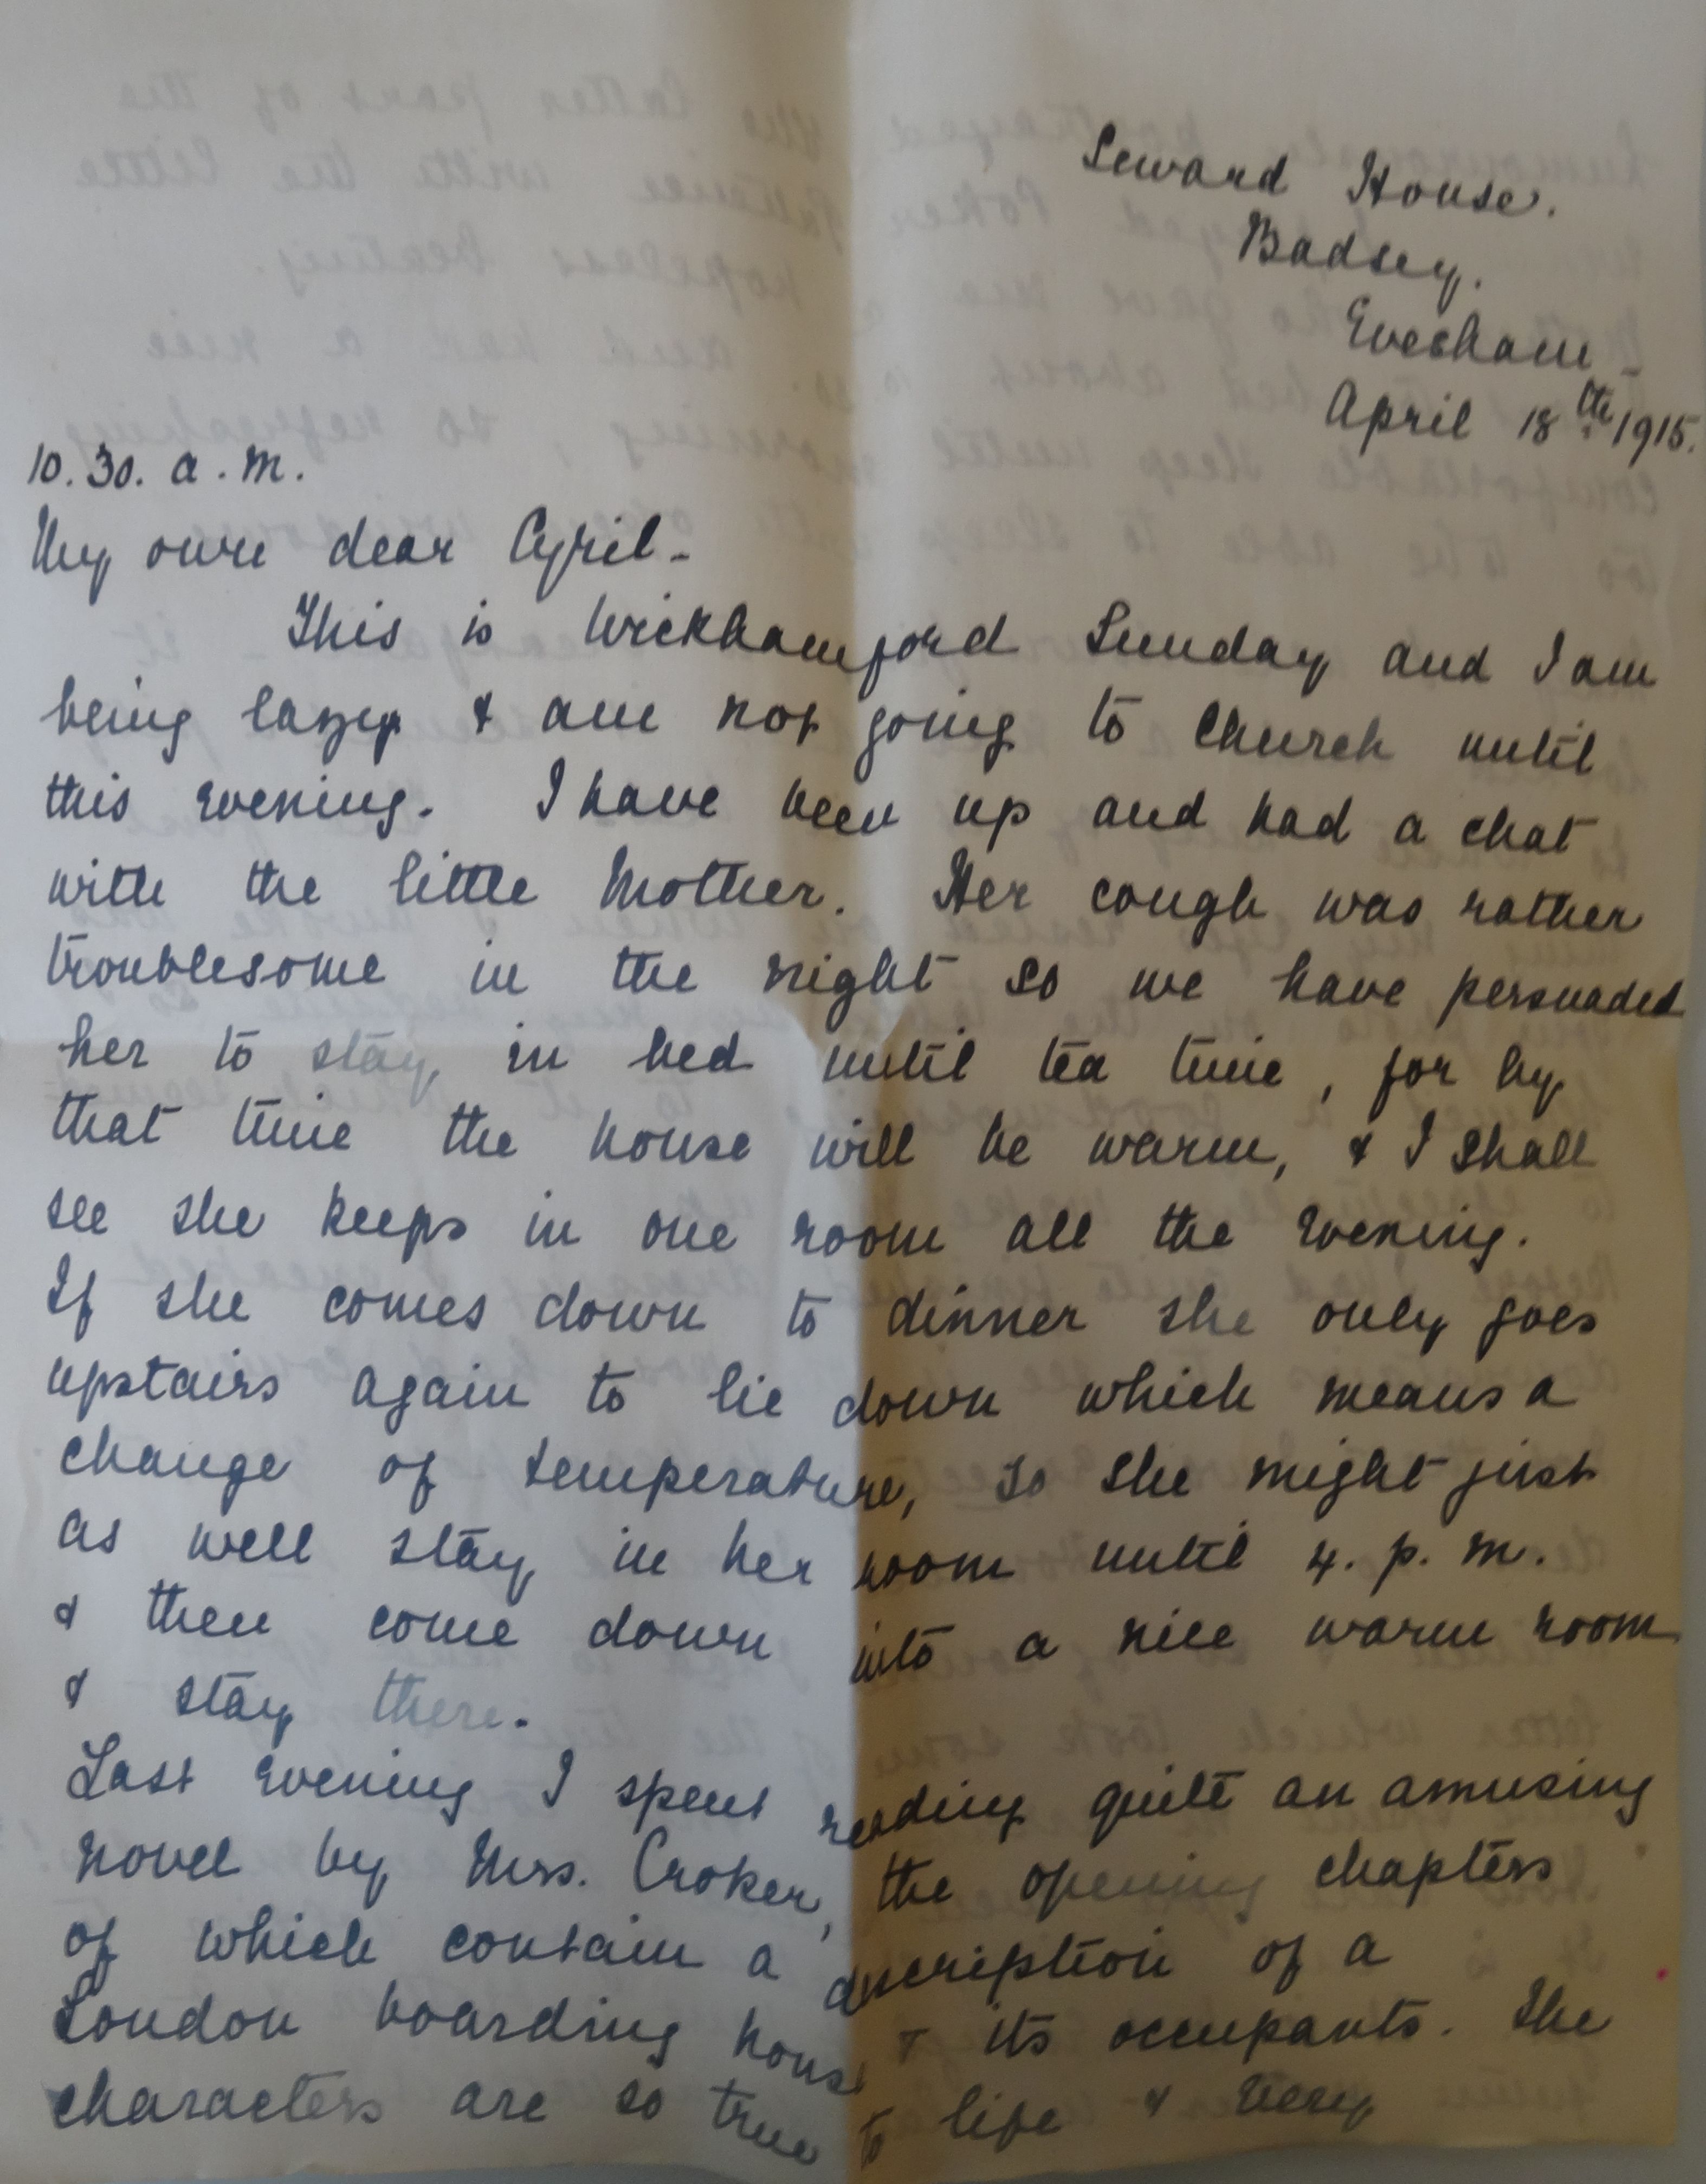 Seward House.
Badsey.
Evesham -
April 18th. 1915.
10.30. a.m.
My own dear Cyril -
This is Wickhamford Sunday and I am
being lazy & am not going to Church until
this evening. I have been up and had a chat
with the little Mother. Her cough was rather
troublesome in the night so we have persuaded
her to stay in bed until tea time, for by
that time the house will be warm, & I shall
see she keeps in one room all the evening.
If she comes down to dinner she only goes
upstairs again to lie down which means a
change of temperature, so she might just
as well stay in her room until 4. p.m.
& then come down into a nice warm room
& stay there.
Last evening I spent reading quite an amusing
novel by Mrs. Croker, the opening chapters
of which contain a description of a
London boarding house & its occupants. The
characters are so true to life & very